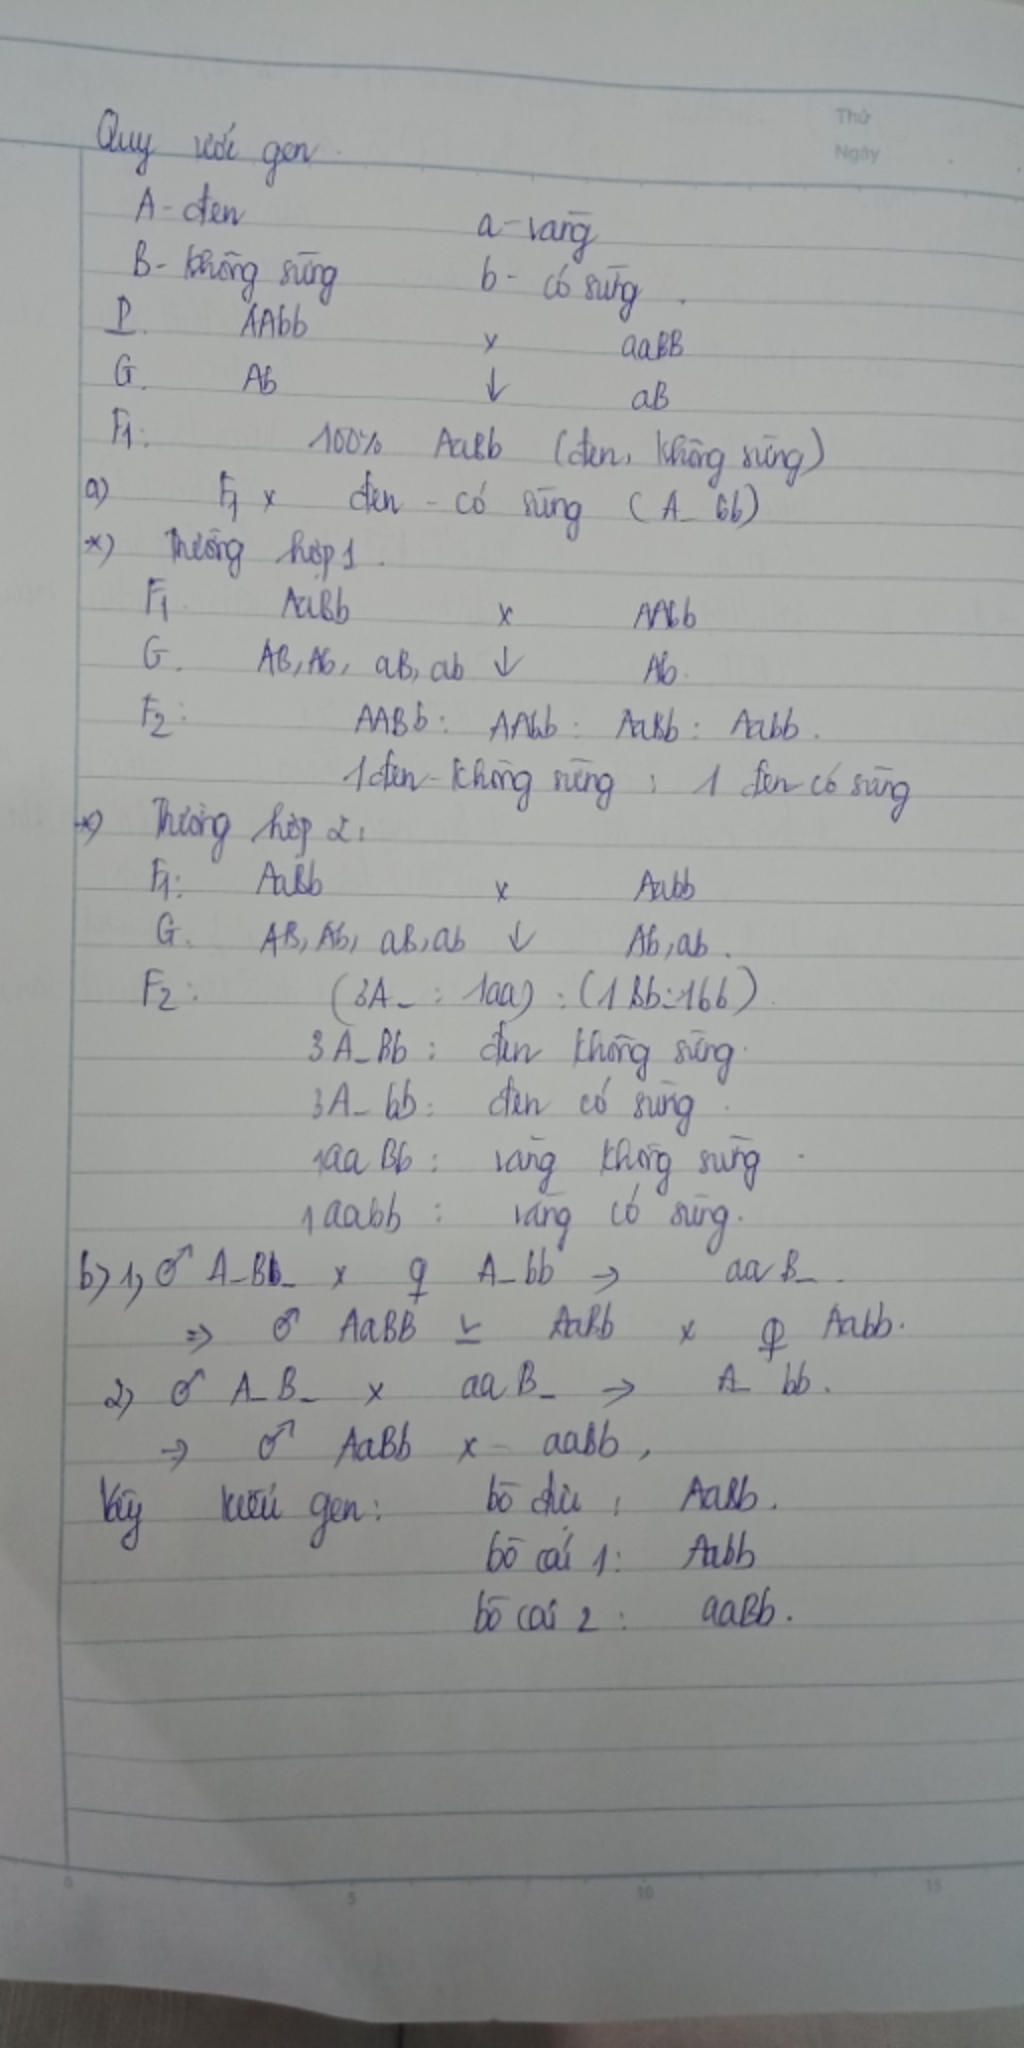 Thứ
Ngày
Quy ước gen.
A - đen a - vàng
B - không sừng b - có sừng.
P. AAbb x aaBB
G. Ab ↓ aB
F1: 100% AaBb (đen, không sừng)
a) F1 x đen - có sừng (A_bb)
*) Trường hợp 1.
F1 AaBb x AAbb
G. AB, Ab, aB, ab ↓ Ab.
F2: AABb : AAbb : AaBb : Aabb.
1 đen - không sừng : 1 đen có sừng
*) Trường hợp 2:
F1: AaBb x Aabb
G. AB, Ab, aB, ab ↓ Ab, ab.
F2: (3A_ : 1aa) : (1Bb : 1bb)
3A_Bb : đen không sừng.
3A_bb : đen có sừng.
1aaBb : vàng không sừng.
1aabb : vàng có sừng.
b) 1) ♂ A_Bb_ x ♀ A_bb → aaB_.
⇒ ♂ AaBB v AaBb x ♀ Aabb.
2) ♂ A_B_ x aaB_ → A_bb.
→ ♂ AaBb x - aaBb,
Vậy kiểu gen: bò đực : AaBb.
bò cái 1: Aabb
bò cái 2: aaBb.
0 5 10 15